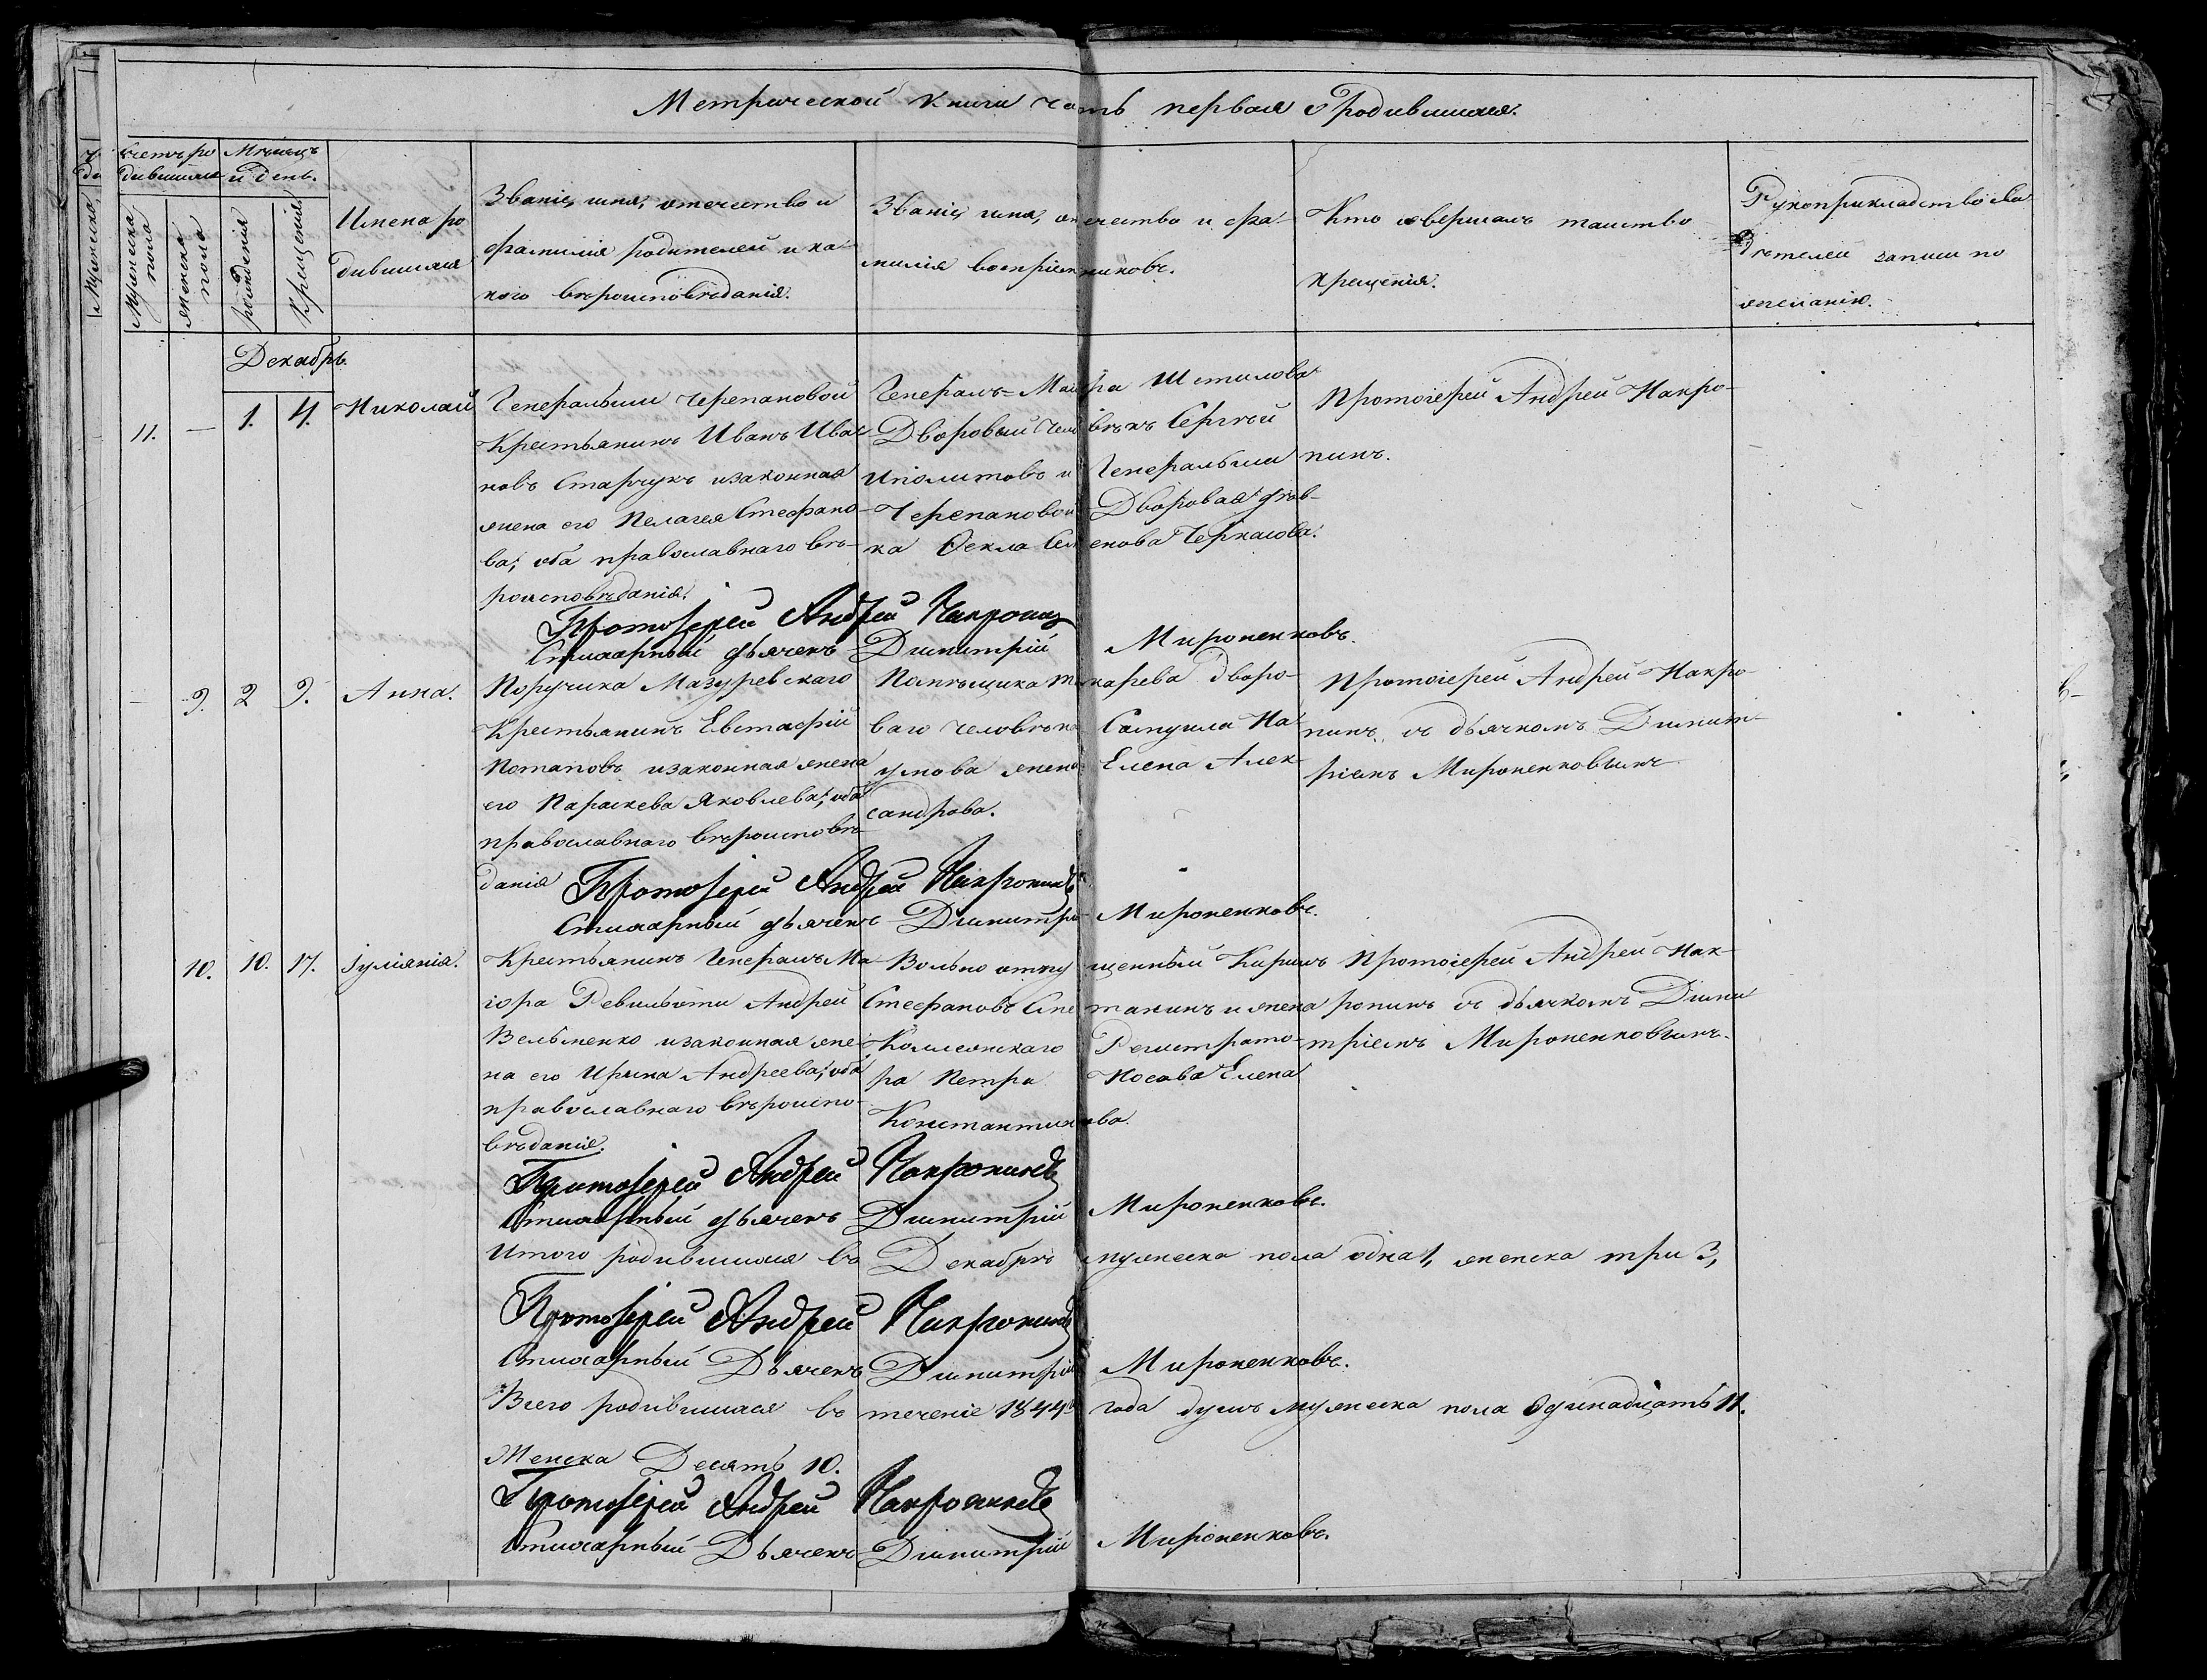 Метрической книги часть первая о родившихся.
Счетъ ро
дившихся
Мѣсяцъ
и день.
Мужеска
Мужеска пола
женска пола
рожденія
крещенія
Имена ро
дившихся
Званіе, имя, отечество и
фамилія родителей и ка
кого вѣроисповѣданія.
Званіе, имя, отечество и фа-
милія воспріемниковъ.
Кто совершалъ таинство
крещенія.
Рукоприкладство сви
дѣтелей записи по
желанію.
Декабрь
11. — 1. 4. Николай
Генеральши Черепановой
Крестьянинъ Иванъ Ива
новъ Старчукъ и законная
жена его Пелагея Стефано-
ва, оба православнаго вѣ-
роисповѣданія.
Генералъ-Маіора Шетилова
Дворовый человѣкъ Сергѣй
Иполитовъ и Генеральши
Черепановой Дворовая дѣв-
ка Ѳекла Семенова Черкасова.
Протоіерей Андрей Накро-
пинъ.
Протоіерей Андрей Накропинъ
Стихарный дьячекъ Димитрій Мироненковъ.
— 9. 2 9. Анна.
Поручика Мазуревскаго
Крестьянинъ Евстафій
Потаповъ и законная жена
его Параскева Яковлева, оба
православнаго вѣроисповѣ
данія
Помѣщика Токарева дворо-
ваго человѣка Самуила На
умова жена Елена Алек
сандрова.
Протоіерей Андрей Накро
пинъ съ дьячкомъ Димит
ріемъ Мироненковымъ
Протоіерей Андрей Накропинъ
Стихарный дьячекъ Димитрій Мироненковъ.
10. 10. 17. Іуліянія.
Крестьянинъ Генералъ Ма
іора Ревильоти Андрей
Вельменко и законная же
на его Ирина Андреева, оба
православнаго вѣроиспо-
вѣданія.
Вольно отпущенный Кирилъ
Стефановъ и жена
Коллежскаго Регистрато-
ра Петра Носова Елена
Константинова.
Протоіерей Андрей Нак
ропинъ съ дьячкомъ Дими
тріемъ Мироненковымъ.
Протоіерей Андрей Накропинъ
Стихарный дьячекъ Димитрій Мироненковъ.
Итого родившихся въ Декабрѣ мужеска пола одна 1, женска три 3,
Протоіерей Андрей Накропинъ
Стихарный Дьячекъ Димитрій Мироненковъ.
Всего родившихся въ теченіе 1844 года душъ мужеска пола Одинадцать 11.
Женска Десять 10.
Протоіерей Андрей Накропинъ
Стихарный Дьячекъ Димитрій Мироненковъ.